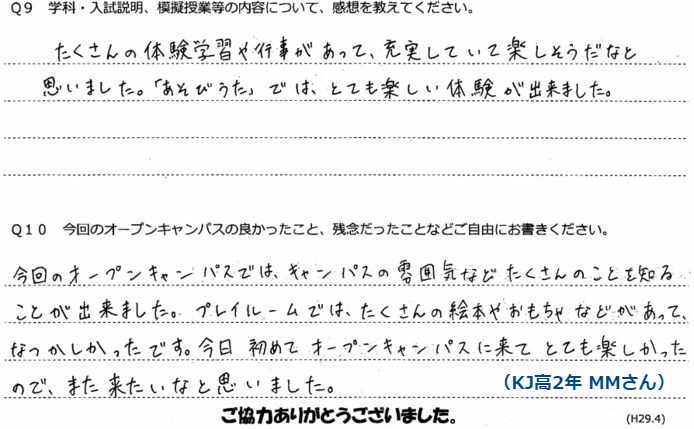 Q9 学科・入試説明、模擬授業等の内容について、感想を教えてください。
たくさんの体験学習や行事があって、充実していて楽しそうだなと
思いました。「あそびうた」では、とても楽しい体験が出来ました。
Q10 今回のオープンキャンパスの良かったこと、残念だったことなどご自由にお書きください。
今回のオープンキャンパスでは、キャンパスの雰囲気などたくさんのことを知る
ことが出来ました。プレイルームでは、たくさんの絵本やおもちゃなどがあって、
なつかしかったです。今日初めてオープンキャンパスに来てとても楽しかった
ので、また来たいなと思いました。
（KJ高2年 MMさん）
ご協力ありがとうございました。
(H29.4)